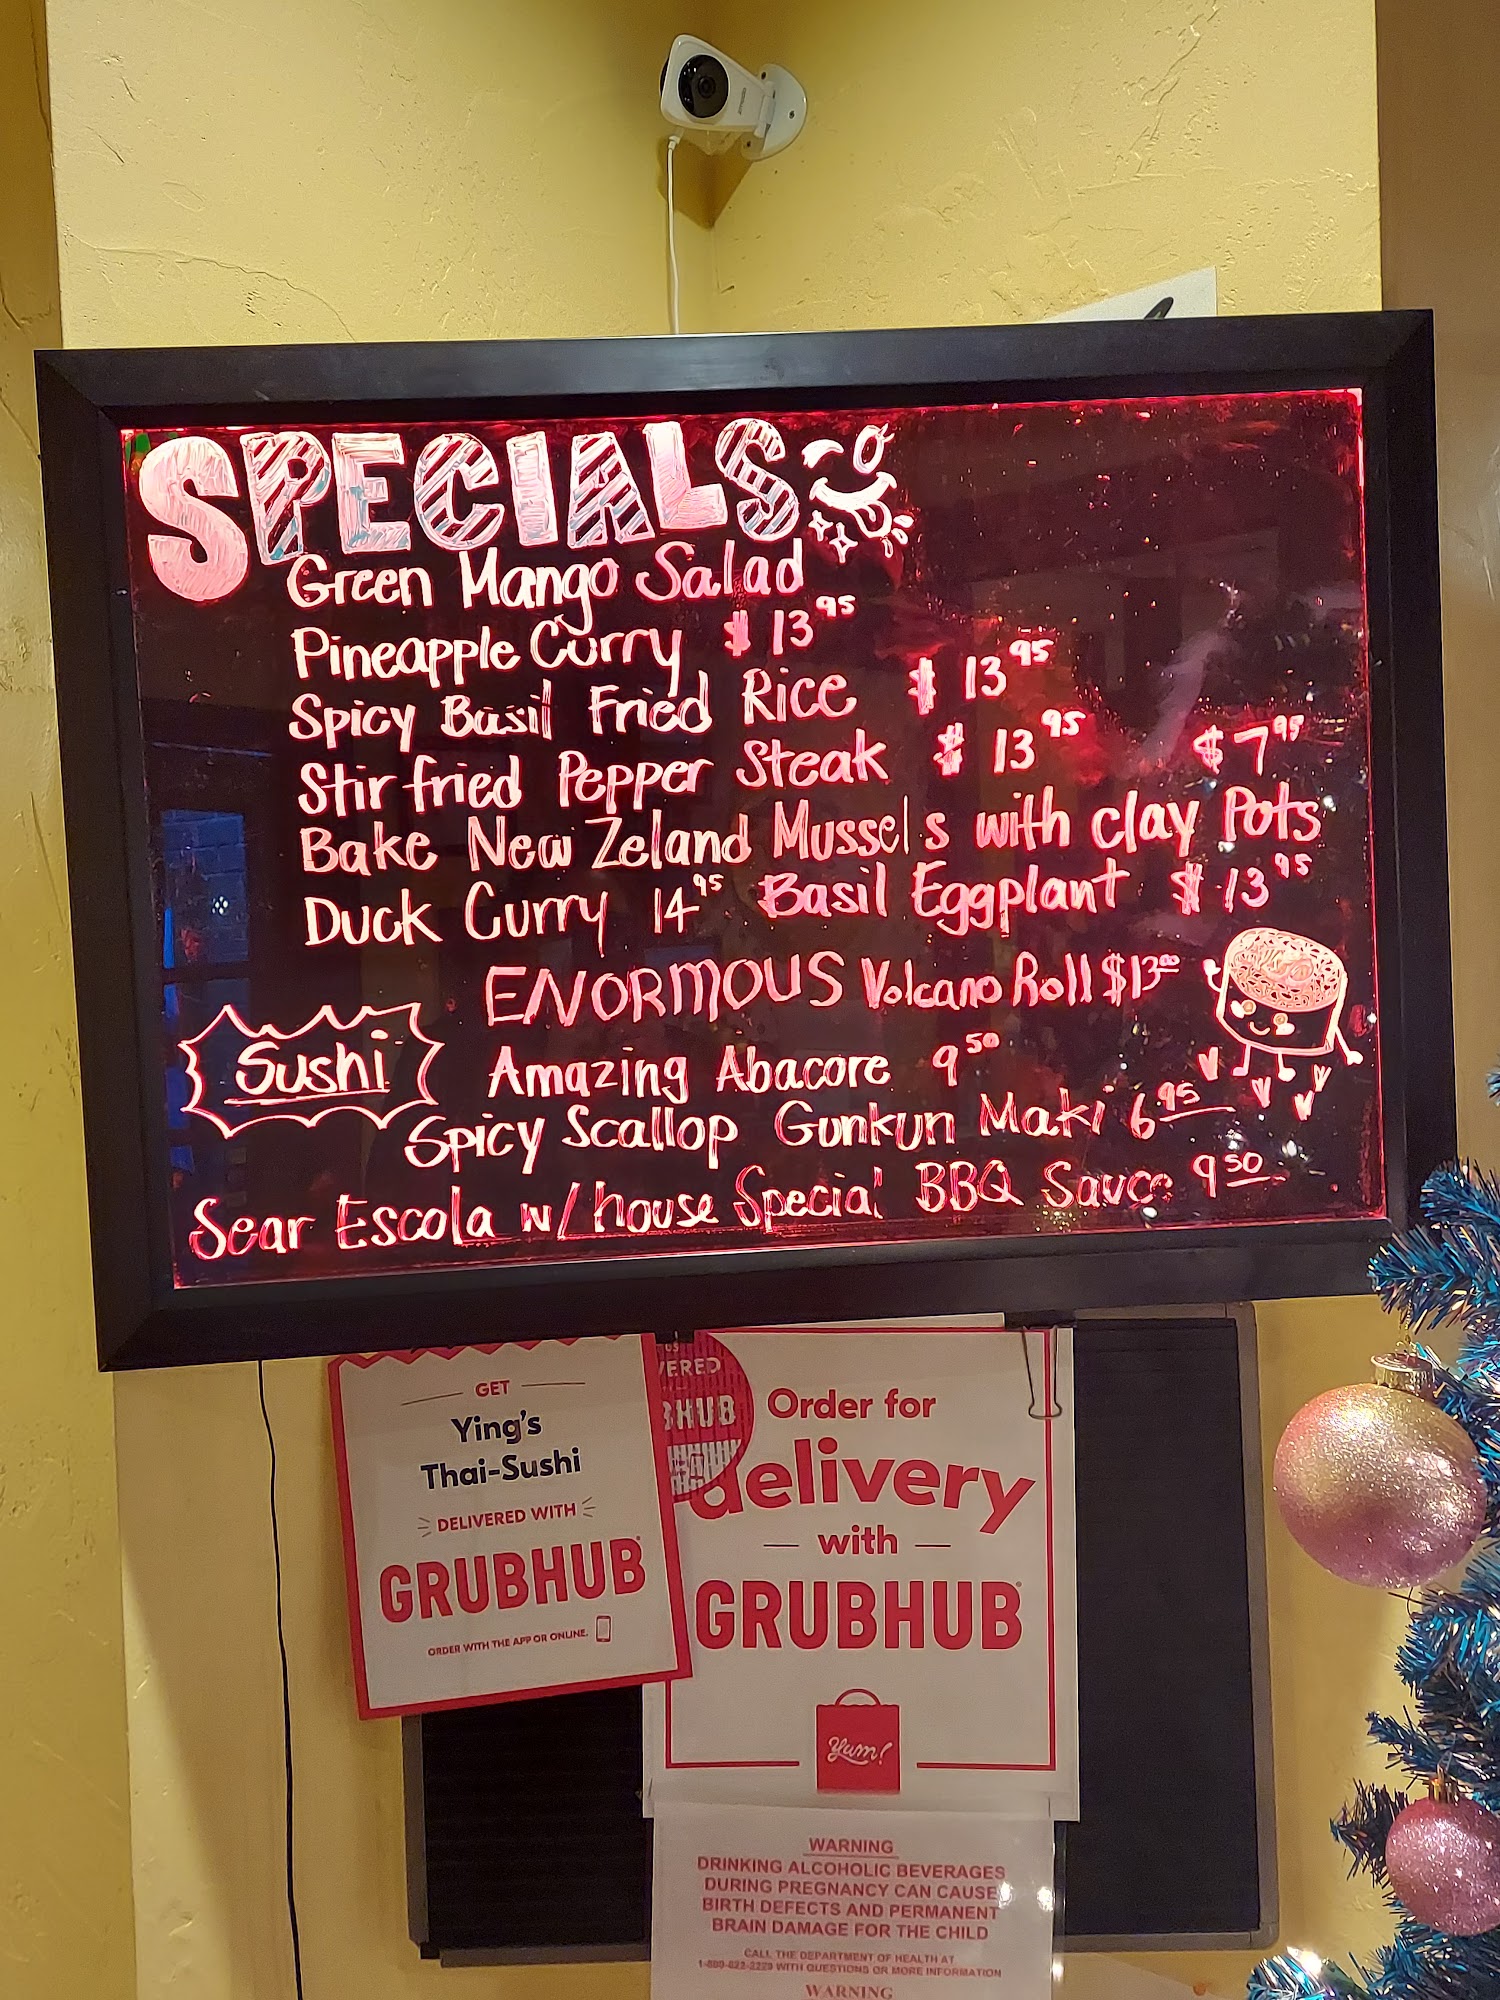 SPECIALS
Green Mango Salad
Pineapple Curry $13.95
Spicy Basil Fried Rice $13.95
Stir fried Pepper Steak $13.95 $7.95
Bake New Zeland Mussels with clay Pots
Duck Curry 14.95 Basil Eggplant $13.95
ENORMOUS Volcano Roll $13.00
Sushi
Amazing Abacore 9.50
Spicy Scallop Gunkun Maki 6.95
Sear Escola w/ house Special BBQ Sauce 9.50
GET
Ying's
Thai-Sushi
DELIVERED WITH
GRUBHUB
ORDER WITH THE APP OR ONLINE.
Order for
delivery
with
GRUBHUB
Yum!
WARNING
DRINKING ALCOHOLIC BEVERAGES
DURING PREGNANCY CAN CAUSE
BIRTH DEFECTS AND PERMANENT
BRAIN DAMAGE FOR THE CHILD
CALL THE DEPARTMENT OF HEALTH AT
WITH QUESTIONS OR MORE INFORMATION
WARNING